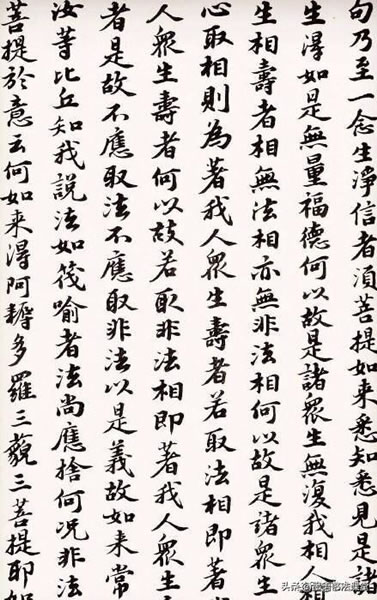 句乃至一念生淨信者須菩提如来悉知悉見是諸
生淂如是無量福德何以故是諸衆生無復我相人相
生相壽者相無法相亦無非法相何以故是諸衆生
心取相則為著我人衆生壽者若取法相即著
人衆生壽者何以故若取非法相即著我人衆生
者是故不應取法不應取非法以是義故如来常
汝等比丘知我説法如筏喻者法尚應捨何況非法
菩提於意云何如来淂阿耨多羅三藐三菩提耶如
头条